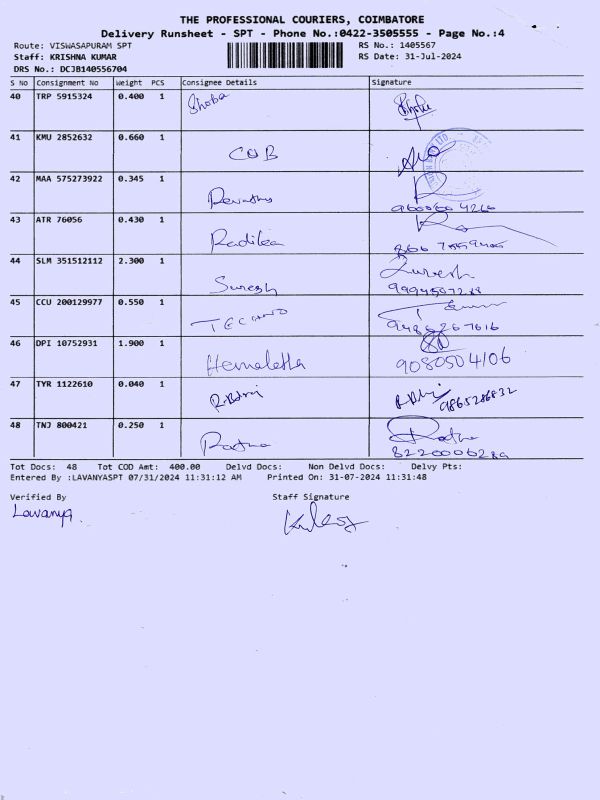 THE PROFESSIONAL COURIERS, COIMBATORE
Delivery Runsheet - SPT - Phone No.:0422-3505555 - Page No.:4
Route: VISWASAPURAM SPT RS No.: 1405567
Staff: KRISHNA KUMAR RS Date: 31-Jul-2024
DRS No.: DCJB140556704
S No Consignment No Weight PCS Consignee Details Signature
40 TRP 5915324 0.400 1 Shoba
41 KMU 2852632 0.660 1 COB
42 MAA 575273922 0.345 1 Revathy
43 ATR 76056 0.430 1 Radika
44 SLM 351512112 2.300 1 Suresh Suresh
45 CCU 200129977 0.550 1 TECHNO
9486267616
46 DPI 10752931 1.900 1 Hemalatha 9080504106
47 TYR 1122610 0.040 1 9865286832
48 TNJ 800421 0.250 1 Ratna Ratna
8220006289
Tot Docs: 48 Tot COD Amt: 400.00 Delvd Docs: Non Delvd Docs: Delvy Pts:
Entered By :LAVANYASPT 07/31/2024 11:31:12 AM Printed On: 31-07-2024 11:31:48
Verified By Staff Signature
Lavanya